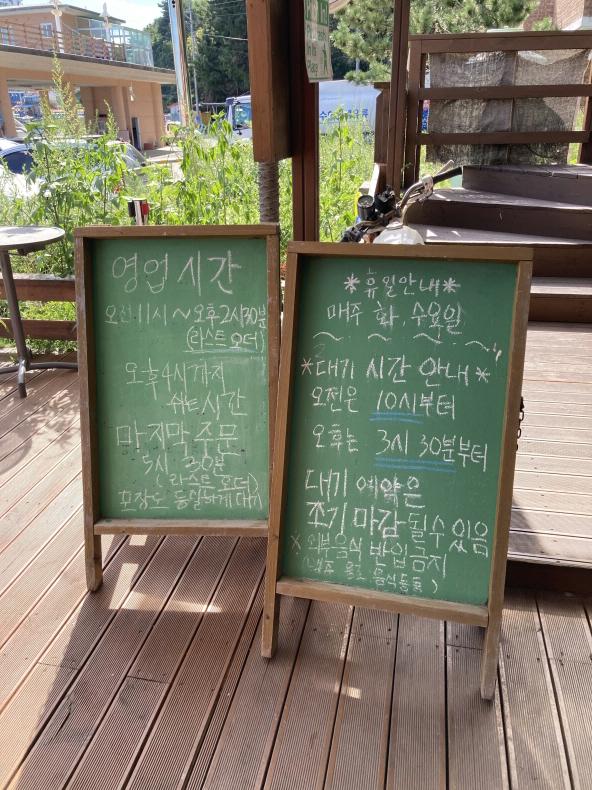 영업 시간
오전 11시 ~ 오후 2시 30분
(라스트 오더)
오후 4시까지
쉬는 시간
마지막 주문
5시 30분
(라스트 오더)
포장도 동일하게 대기
*휴일안내*
매주 화, 수요일
*대기 시간 안내*
오전은 10시부터
오후는 3시 30분부터
대기 예약은
조기 마감 될 수 있음
※ 외부음식 반입금지